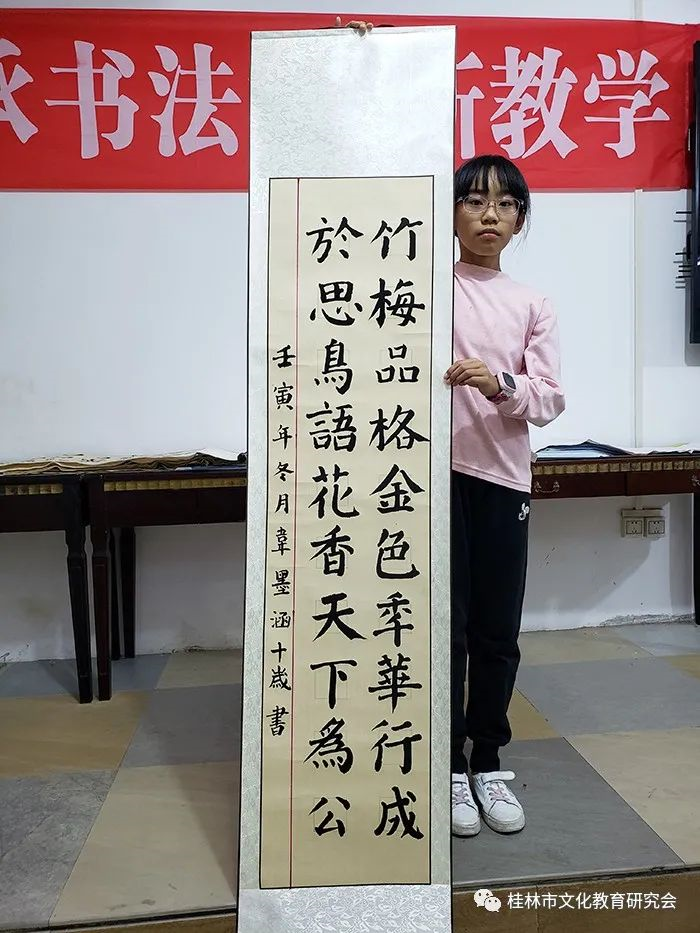 书法
教学
竹梅品格金色秊華行成
於思鳥語花香天下為公
壬寅年冬月韋墨涵十歲書
桂林市文化教育研究会